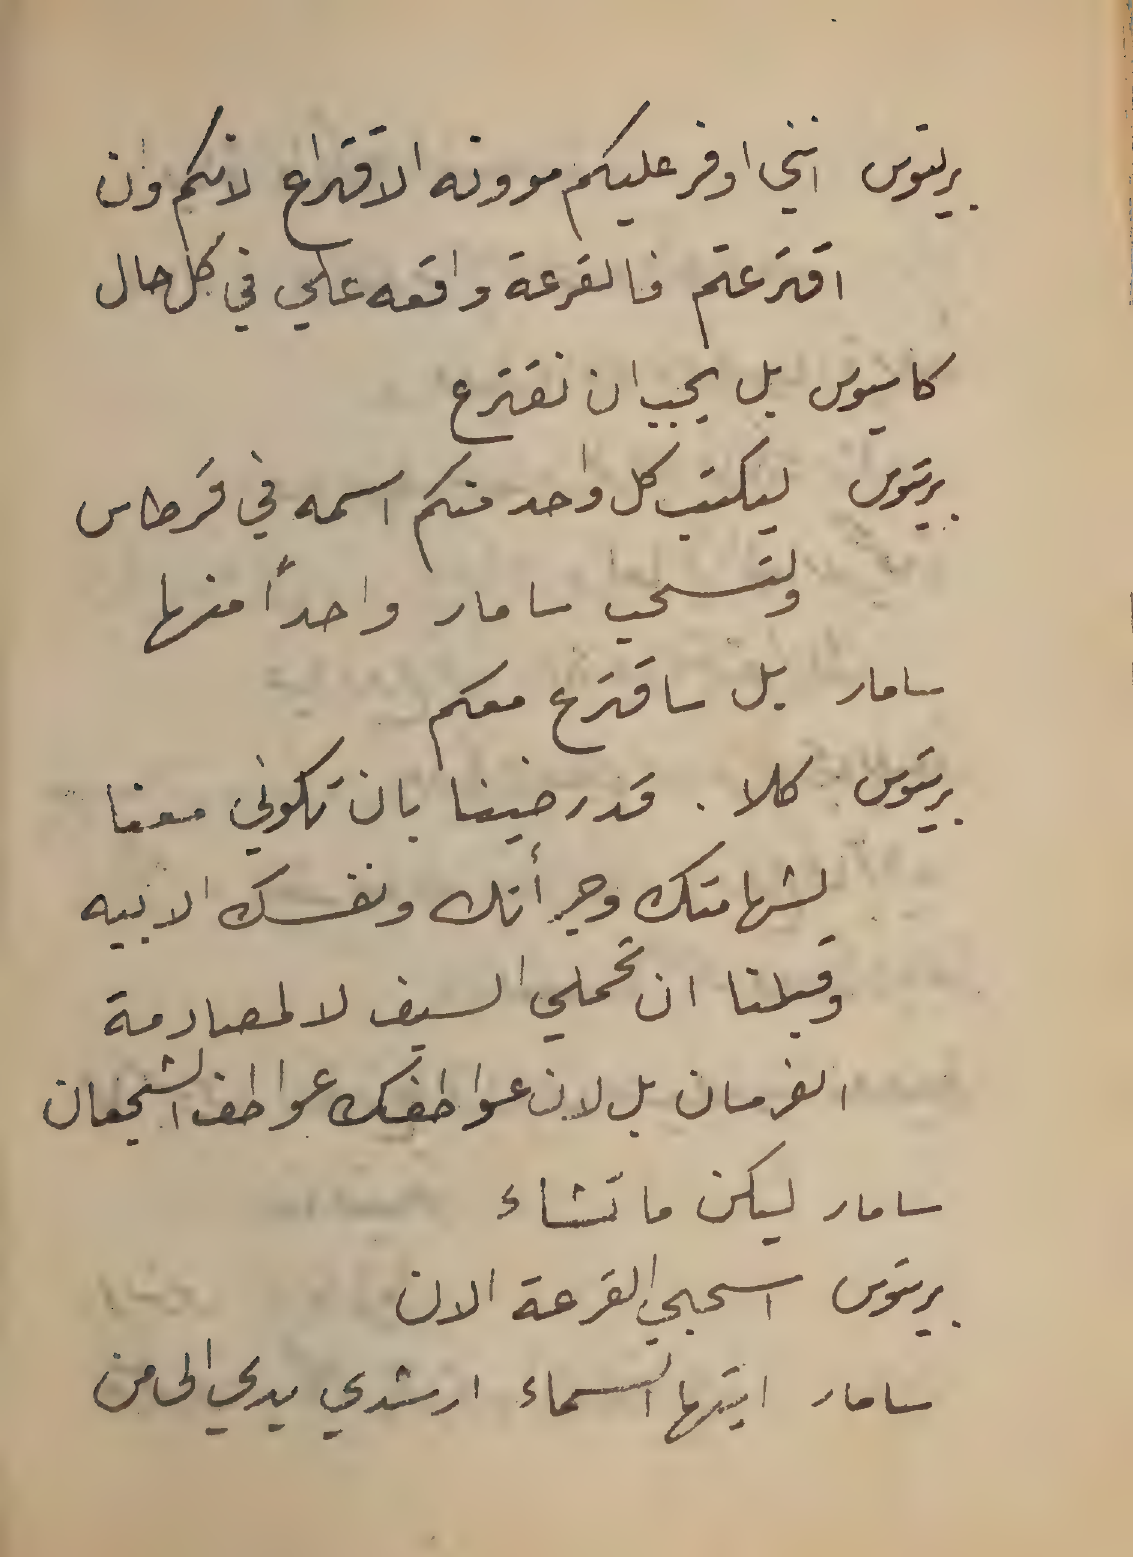 بريتوس انني اوفر عليكم موونه الاقتراع لانكم وان
اقترعتم فالقرعة واقعه علي في كل حال
كاسيوس بل يجب ان نقترع
بريتوس ليكتب كل واحد منكم اسمه في قرطاس
ولتسحب سامار واحداً منها
سامار بل ساقترع معكم
بريتوس كلا . قد رضينا بان تكوني معنا
لشهامتك وجرأتك ونفسك الابيه
وقبلنا ان تحملي السيف لا لمصادمة
الفرسان بل لان عواطفك عواطف الشجعان
سامار ليكن ما تشاء
بريتوس اسحبي القرعة الان
سامار ايتها السماء ارشدي يدي الى من